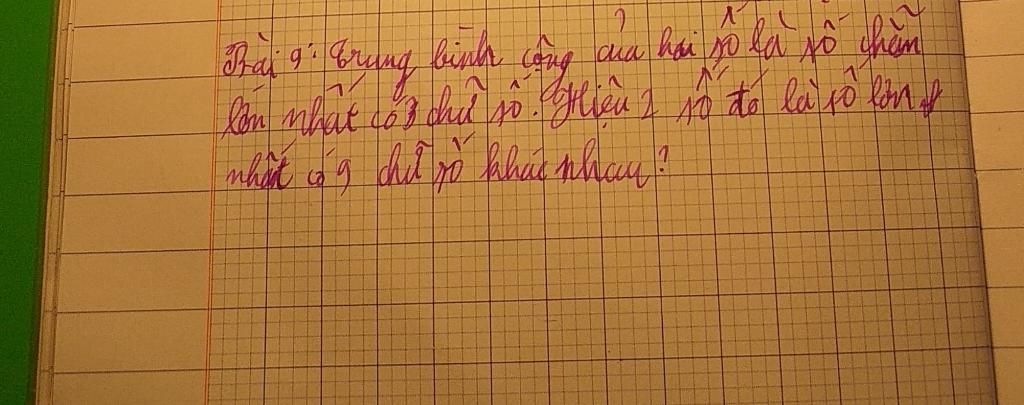 Bài 9: Trung bình cộng của hai số là số chẵn
lớn nhất có 3 chữ số. Hiệu 2 số đó là số lớn
nhất có 9 chữ số khác nhau?